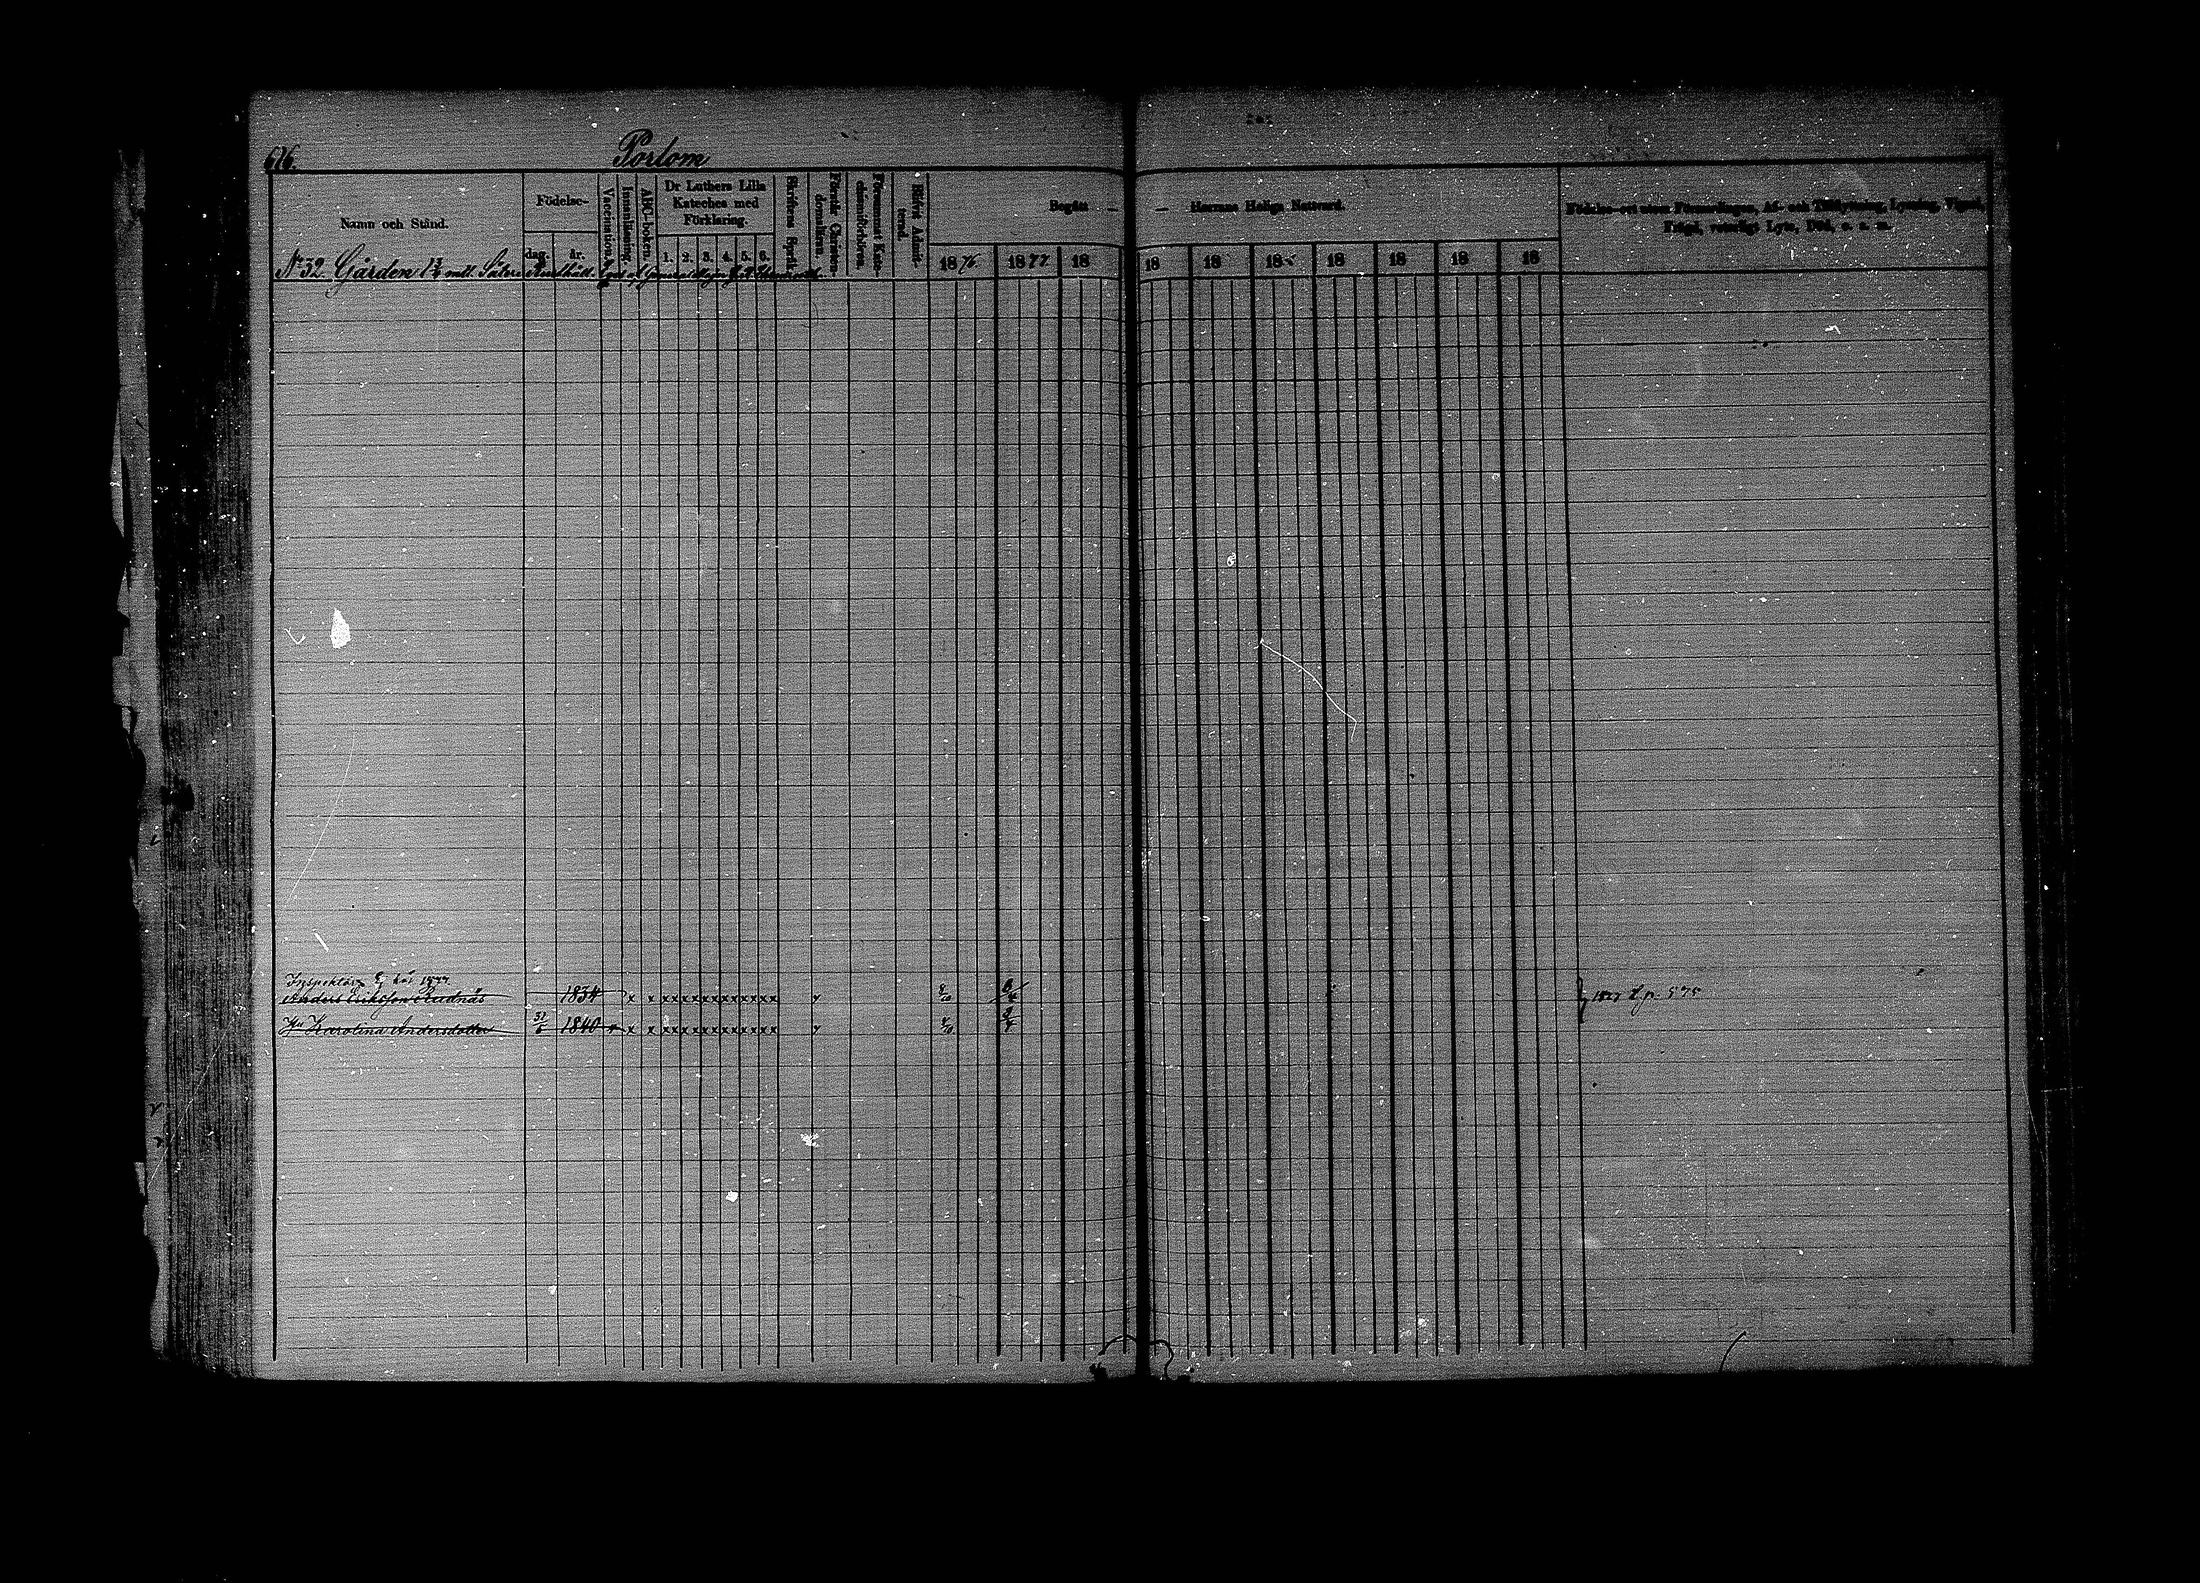 676.
Porlom
Namn och Stånd.
Födelse-
dag. år.
Vaccination.
Innanläsning.
ABC-boken.
Dr Luthers Lilla
Kateches med
Förklaring.
1. 2. 3. 4. 5. 6.
Skriftens Språk.
Förstår Christen-
domsläran.
Försummat Kate-
chismiförhören.
Blifvit Admit-
terad.
Begått — — Herrans Heliga Nattvard.
1876 1877 18 18 18 18 18 18 18 18
Födelse-ort utom Församlingen, Af- och Tillflyttning, Lysning, Vigsel,
Frägd, vanligt Lyte, Död, o. s. m.
N 32 Gården mtl. Säteri
Inspektorn Ej här 1877
Anders Eriksson Rudnäs 1834 x x x x x x x x x x x x x x
Hu Karolina Andersdotter 31/5 1840 x x x x x x x x x x x x x x
1877 l. p. 575